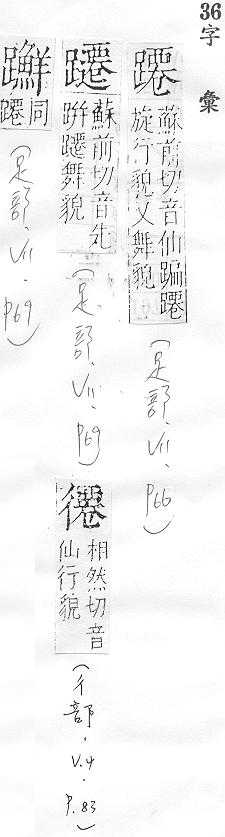 36字彙
蹮
蘇前切音仙蹁蹮
旋行貌又舞貌
(足部.VII.P66)
躚
蘇前切音先
跰躚舞貌
(足部.VII.P69)
僊
相然切音
仙行貌
(彳部.V.4.P.83)
同
躚
(足部.VII.P69)